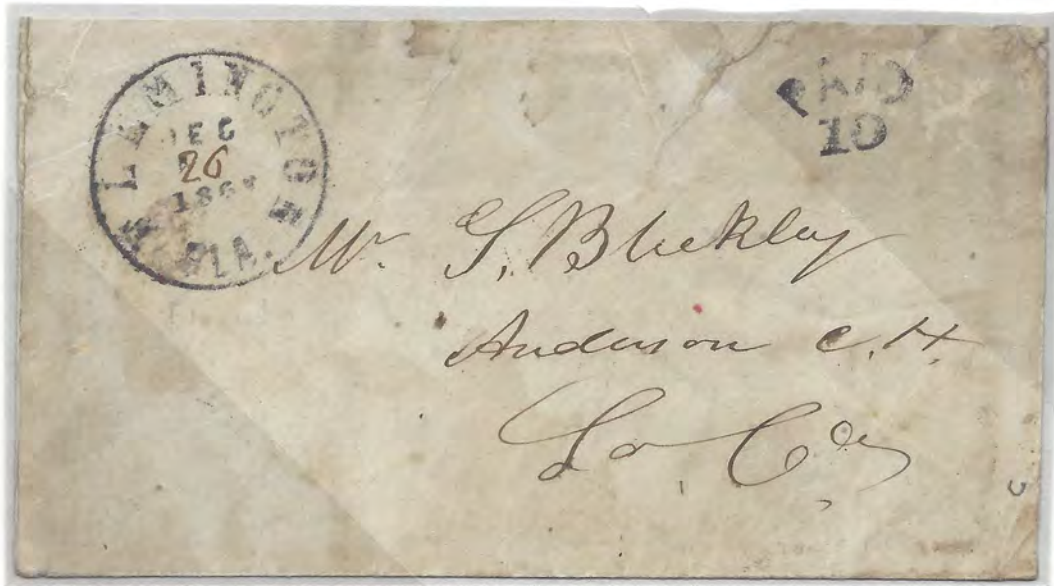 FLEMINGTON
DEC
26
FLA.
PAID
10
Mr. S. Bleckley
Anderson C. H.
So Ca